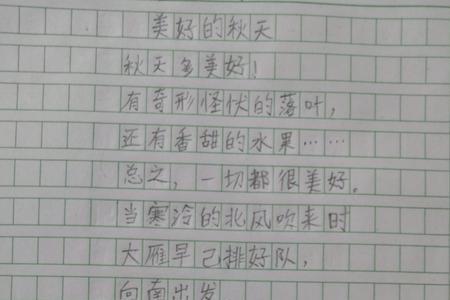 美好的秋天
秋天多美好!
有奇形怪状的落叶,
还有香甜的水果……
总之,一切都很美好。
当寒冷的北风吹来时
大雁早已排好队,
向南出发